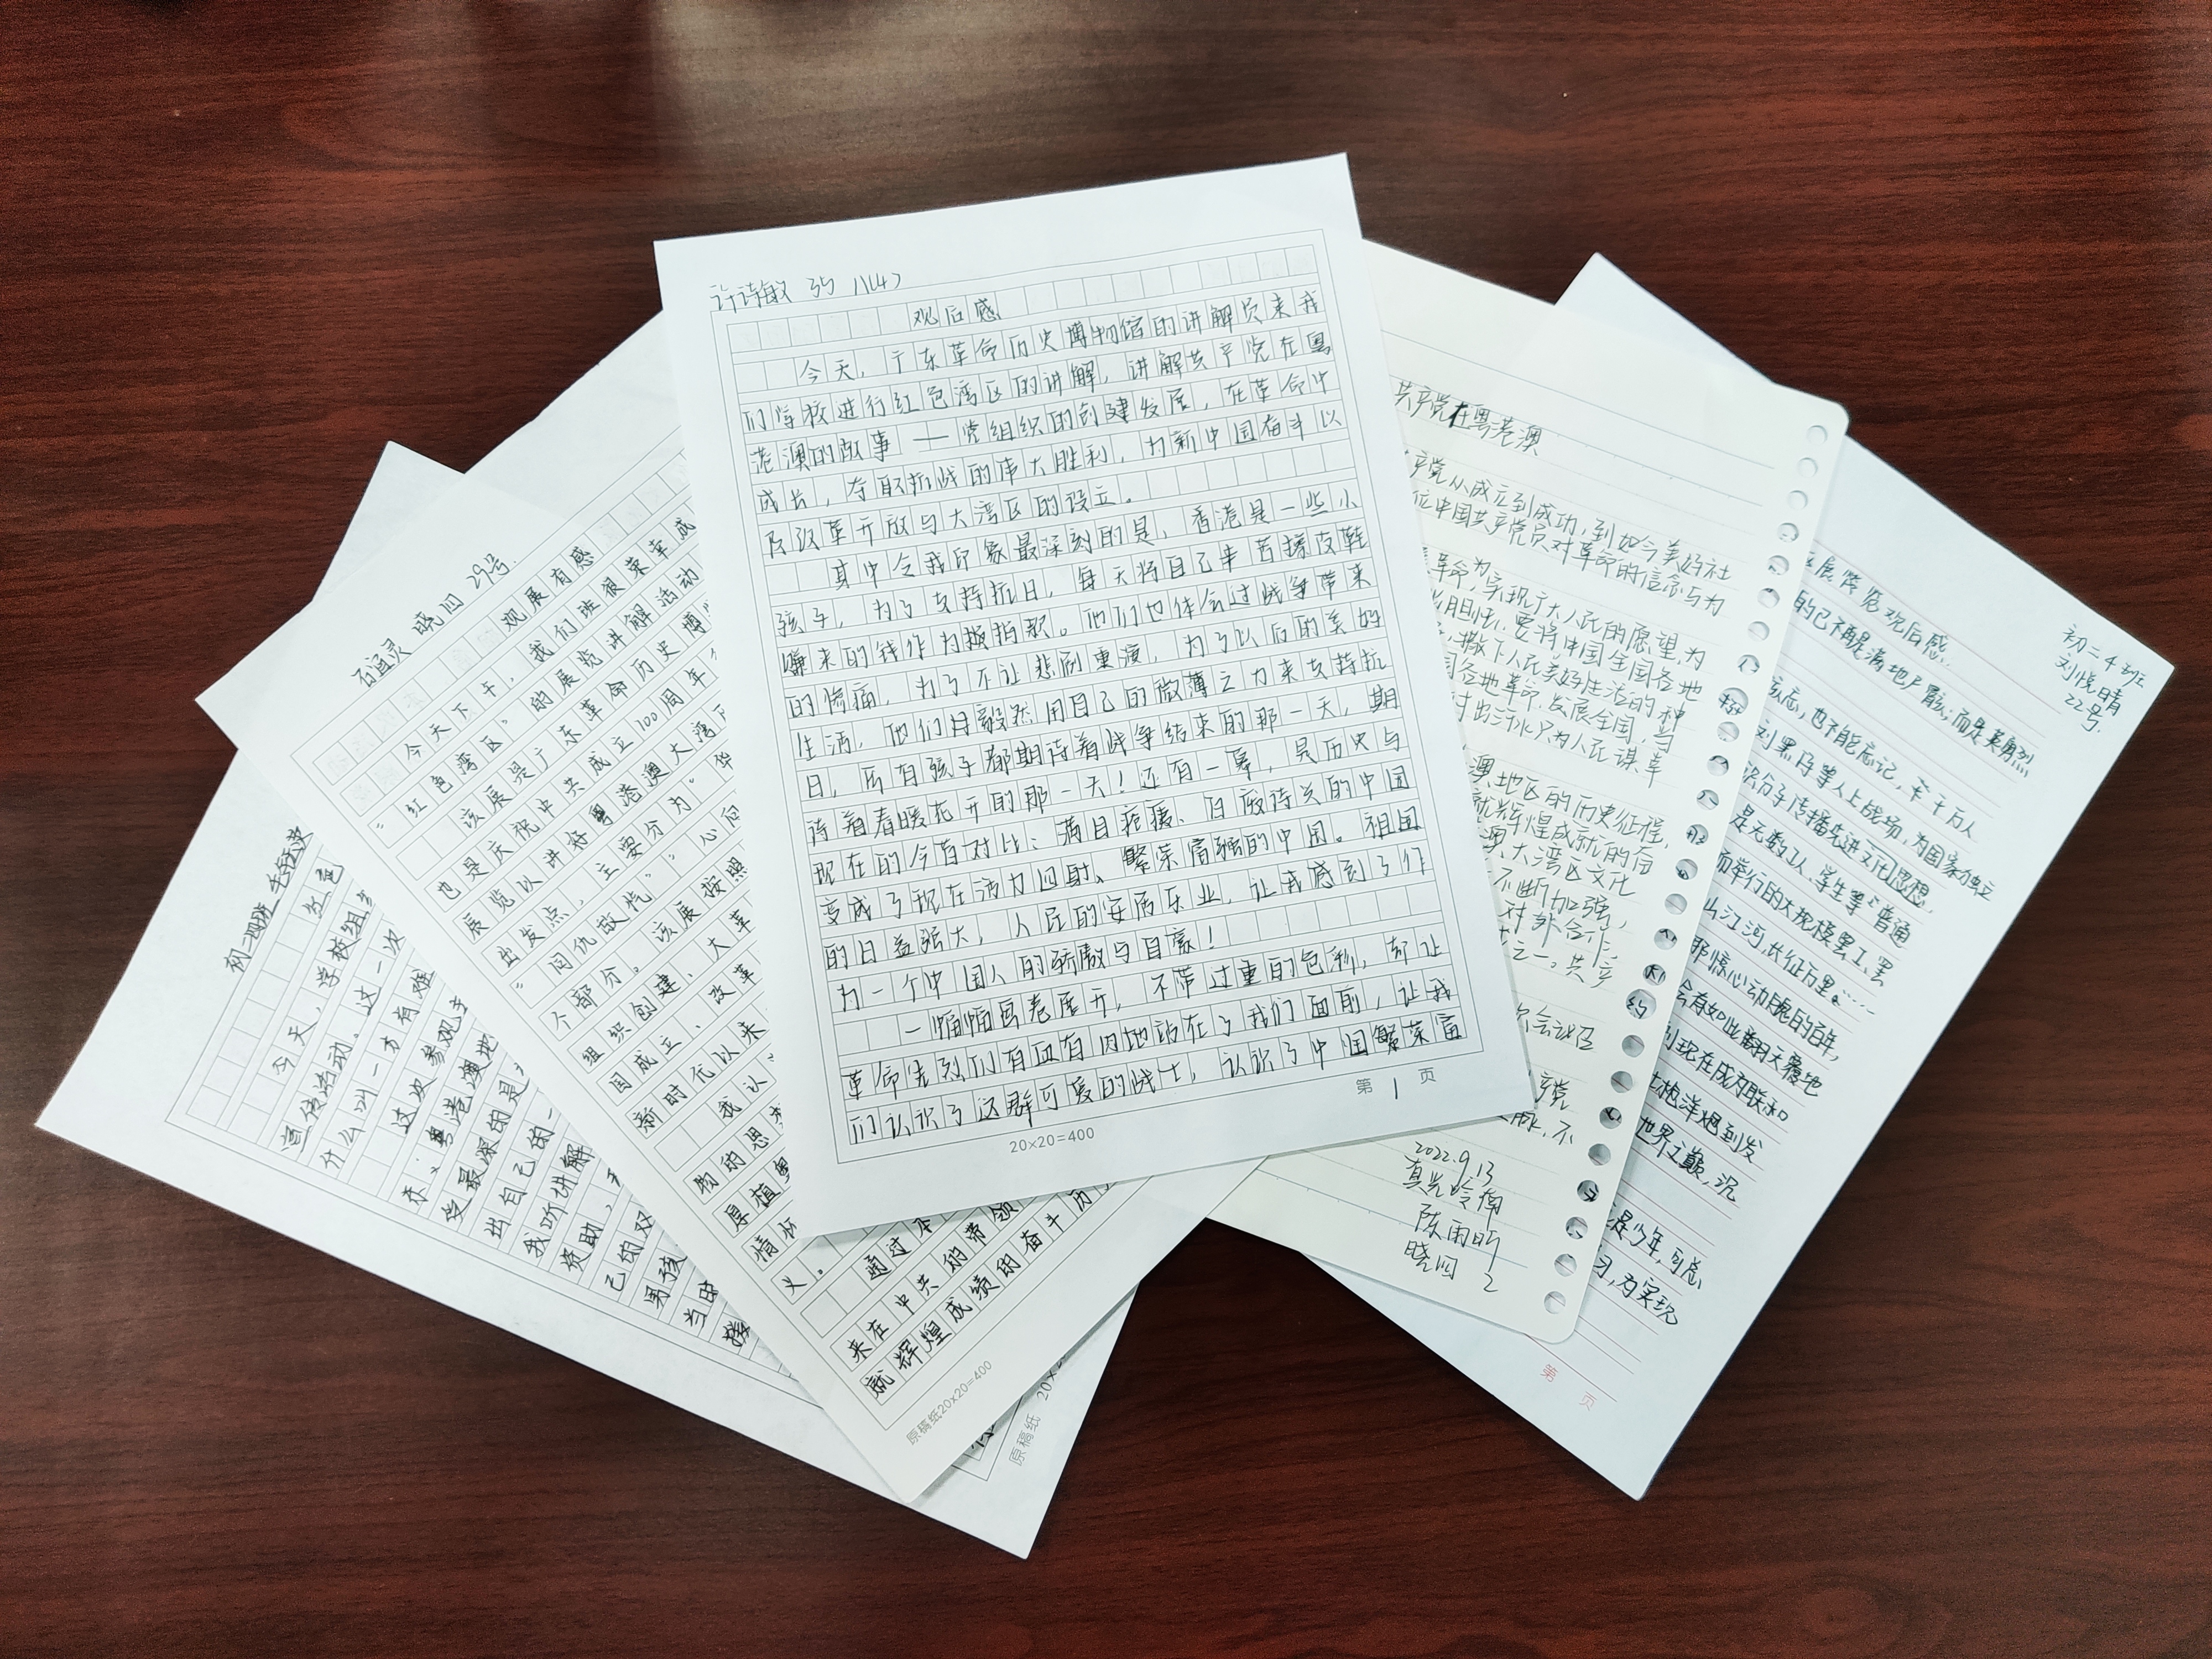 许诗敏 35 八(4)
观后感
今天，广东革命历史博物馆的讲解员来我
们学校进行红色湾区的讲解，讲解共产党在粤
港澳的故事——党组织的创建发展，在革命中
成长，夺取抗战的伟大胜利，为新中国奋斗以
及改革开放与大湾区的设立。
其中令我印象最深刻的是，香港是一些小
孩子，为了支持抗日，每天将自己辛苦擦皮鞋
赚来的钱作为捐款。他们也体会过战争带来
的惨痛，为了不让悲剧重演，为了以后的美好
生活，他们毅然用自己的微薄之力来支持抗
日，所有孩子都期待着战争结束的那一天，期
待着春暖花开的那一天！还有一幕，是历史与
现在的今昔对比：满目疮痍、百废待兴的中国
变成了现在活力四射、繁荣富强的中国。祖国
的日益强大，人民的安居乐业，让我感到了作
为一个中国人的骄傲与自豪！
一幅幅画卷展开，不带过重的色彩，却让
革命先烈们有血有肉地站在了我们面前，让我
们认识了这群可爱的战士，认识了中国繁荣富
第 1 页
20×20=400
石涵灵 晓四 29号.
观展有感
今天下午，我们班很荣幸成
“红色湾区”的展览讲解活动
该展是广东革命历史博
也是庆祝中共成立100周年
展览以讲好粤港澳大湾区
出发点，主要分为“华
“同仇敌忾”“心向
个部分。该展按照
组织创建、大革
国成立、改革
新时代以来
我认
物的思
厚植粤
情怀
义。
通过本
来在中共的带领
就辉煌成绩的奋斗历
原稿纸20×20=400
初二四班
红色
今天，学校组
宣传活动。这一次
什么叫一方有难
这次参观
东、粤港澳地
受最深的是
出自己的一
我听讲解
资助，
己的双
男孩
当时
援
原稿纸 20×
共产党在粤港澳
产党从成立到成功，到如今美好社
位中国共产党员对革命的信念与为
革命，实现广大人民的愿望，为
胆怯，要将中国全国各地
，撒下人民美好生活的种
国各地革命，发展全国，当
付出汗水只为人民谋幸
澳地区的历史征程，
就辉煌成就的奋
澳大湾区文化
不断加强，
对外合作
之一。共产
会议
产党
脉，不
2022.9.13
真光岭南
陈雨昕
晓四 2
初二4班
刘悦晴
22号.
区展览观后感.
的已不再是满地尸骸，而是英勇烈
该忘，也不能忘记，千千万万人
刘黑仔等人上战场，为国家独立
识分子传播先进文化思想，
是无数工人、学生等普通
而举行的大规模罢工、罢
江河，长征万里……
那惊心动魄的百年，
会有如此翻天覆地
到现在成为联和
土枪洋炮到发
世界之巅，沉
是少年，可总
习，为实现
第 页